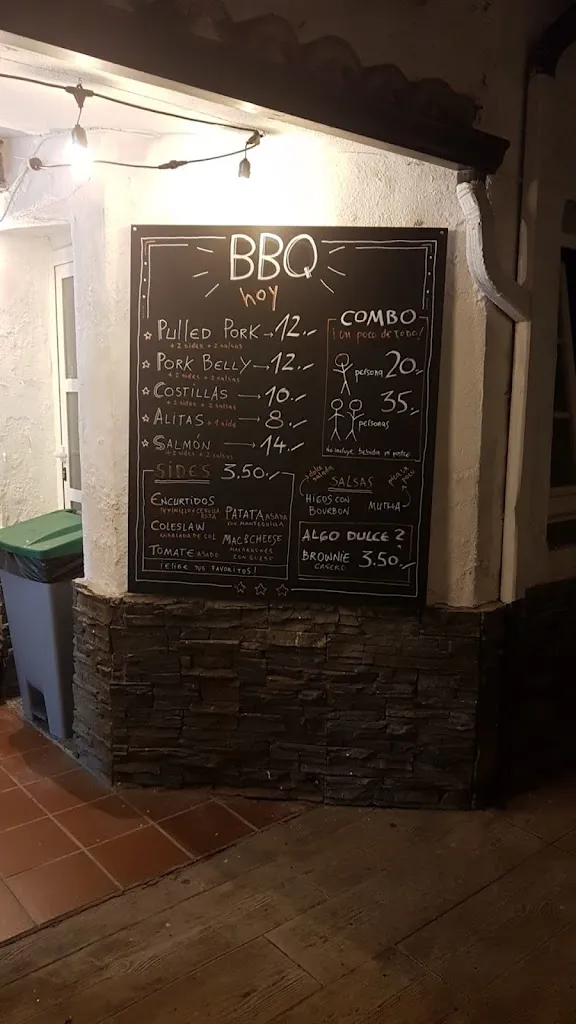 BBQ
hoy
Pulled Pork → 12.-
+ 2 sides + 2 salsas
Pork Belly → 12.-
+ 2 sides + 2 salsas
Costillas → 10.-
+ 2 sides + 2 salsas
Alitas + 1 side → 8.-
Salmón → 14.-
+ 2 sides + 2 salsas
COMBO
¡un poco de todo!
persona 20.-
personas 35.-
no incluye bebida ni postre
SIDES 3.50.-
Encurtidos
Coleslaw
ensalada de col
Tomate asado
Patata asada
con mantequilla
Mac&Cheese
macarrones
con queso
¡Elige tus favoritos!
SALSAS
Higos con
Bourbon
ALGO DULCE?
Brownie
casero
3.50.-